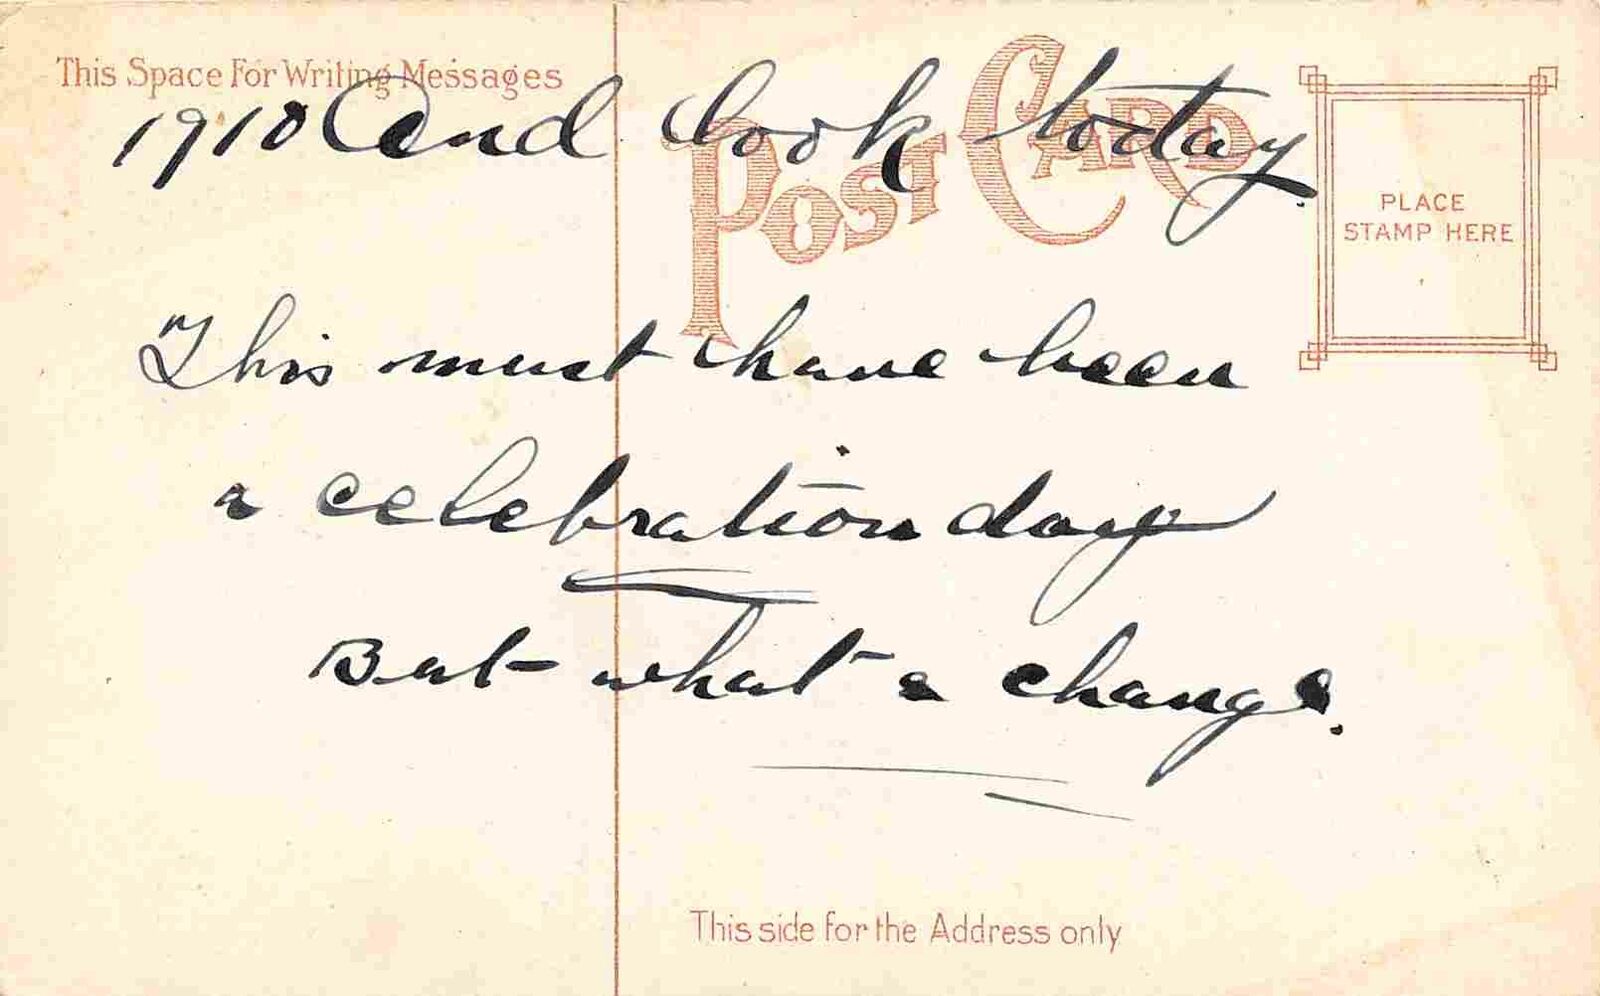 This Space For Writing Messages
1910 And look today.
POST CARD
PLACE
STAMP HERE
This must have been
a celebration day
But what a change.
This side for the Address only